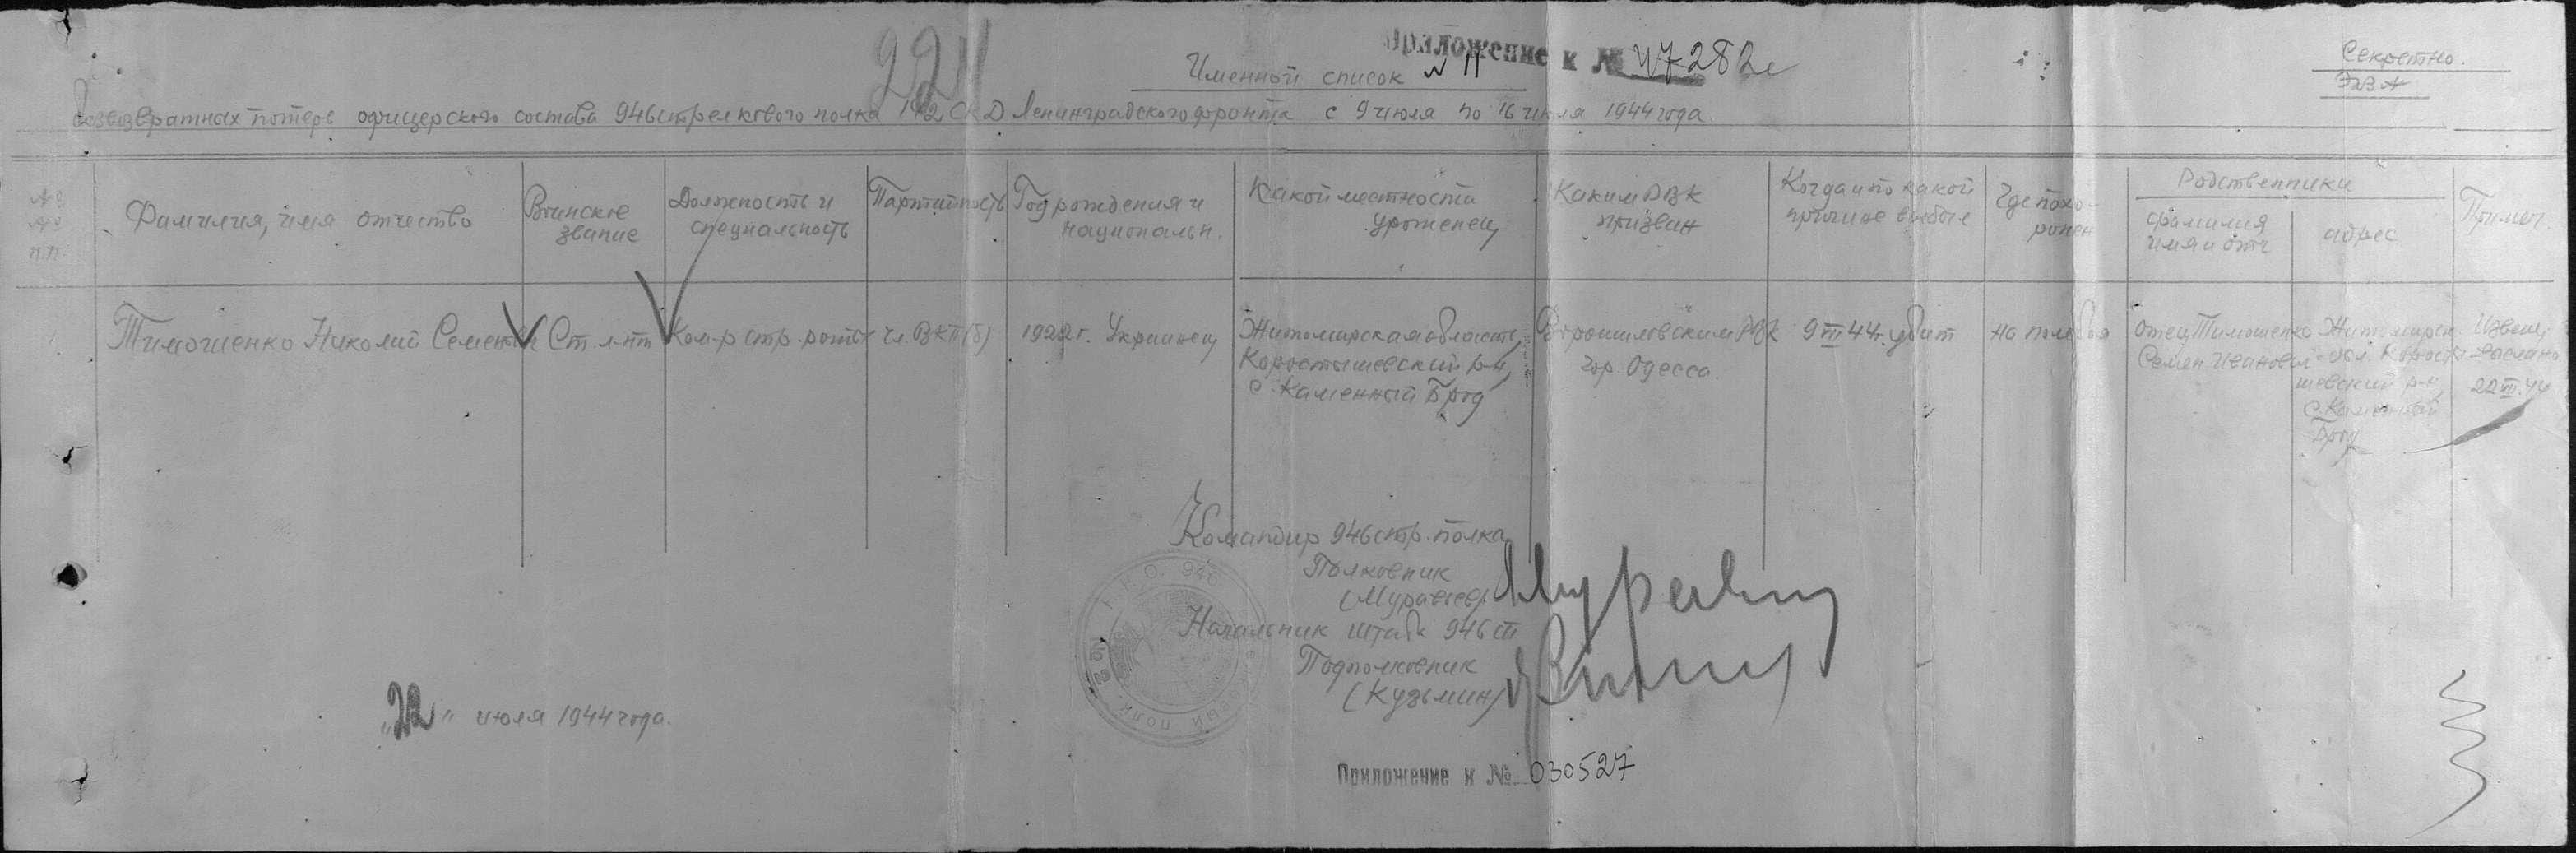 221
Приложение к № 47282с
Секретно.
Экз №
Именной список № 11
безвозвратных потерь офицерского состава 946 стрелкового полка СКД Ленинградского фронта с 9 июля по 16 июля 1944 года
№№ п.п.
Фамилия, имя отчество
Воинское звание
Должность и специальность
Партийность
Год рождения и национальн.
Какой местности уроженец
Каким РВК призван
Когда и по какой причине выбыл
Где похоронен
Родственники
фамилия имя и отч
адрес
Примеч.
1
Тимошенко Николай Семенович
Ст. л-нт
Ком-р стр. роты
чл. ВКП(б)
1922г. Украинец
Житомирская область,
Коростышевский р-н,
с. Каменный Брод
Ворошиловским РВК
гор. Одесса.
9 VII 44г. убит
на поле боя
отец Тимошенко
Семен Иванович
Житомирск.
обл. Корости-
шевский р-н,
с. Каменный
Брод
Извещ.
послано
22 VII.44
Командир 946 стр. полка
Полковник
(Муравьев)
Начальник штаба 946 сп
Подполковник
(Кузьмин)
Н.К.О. 946
полк
"22" июля 1944 года.
Приложение к № 030527